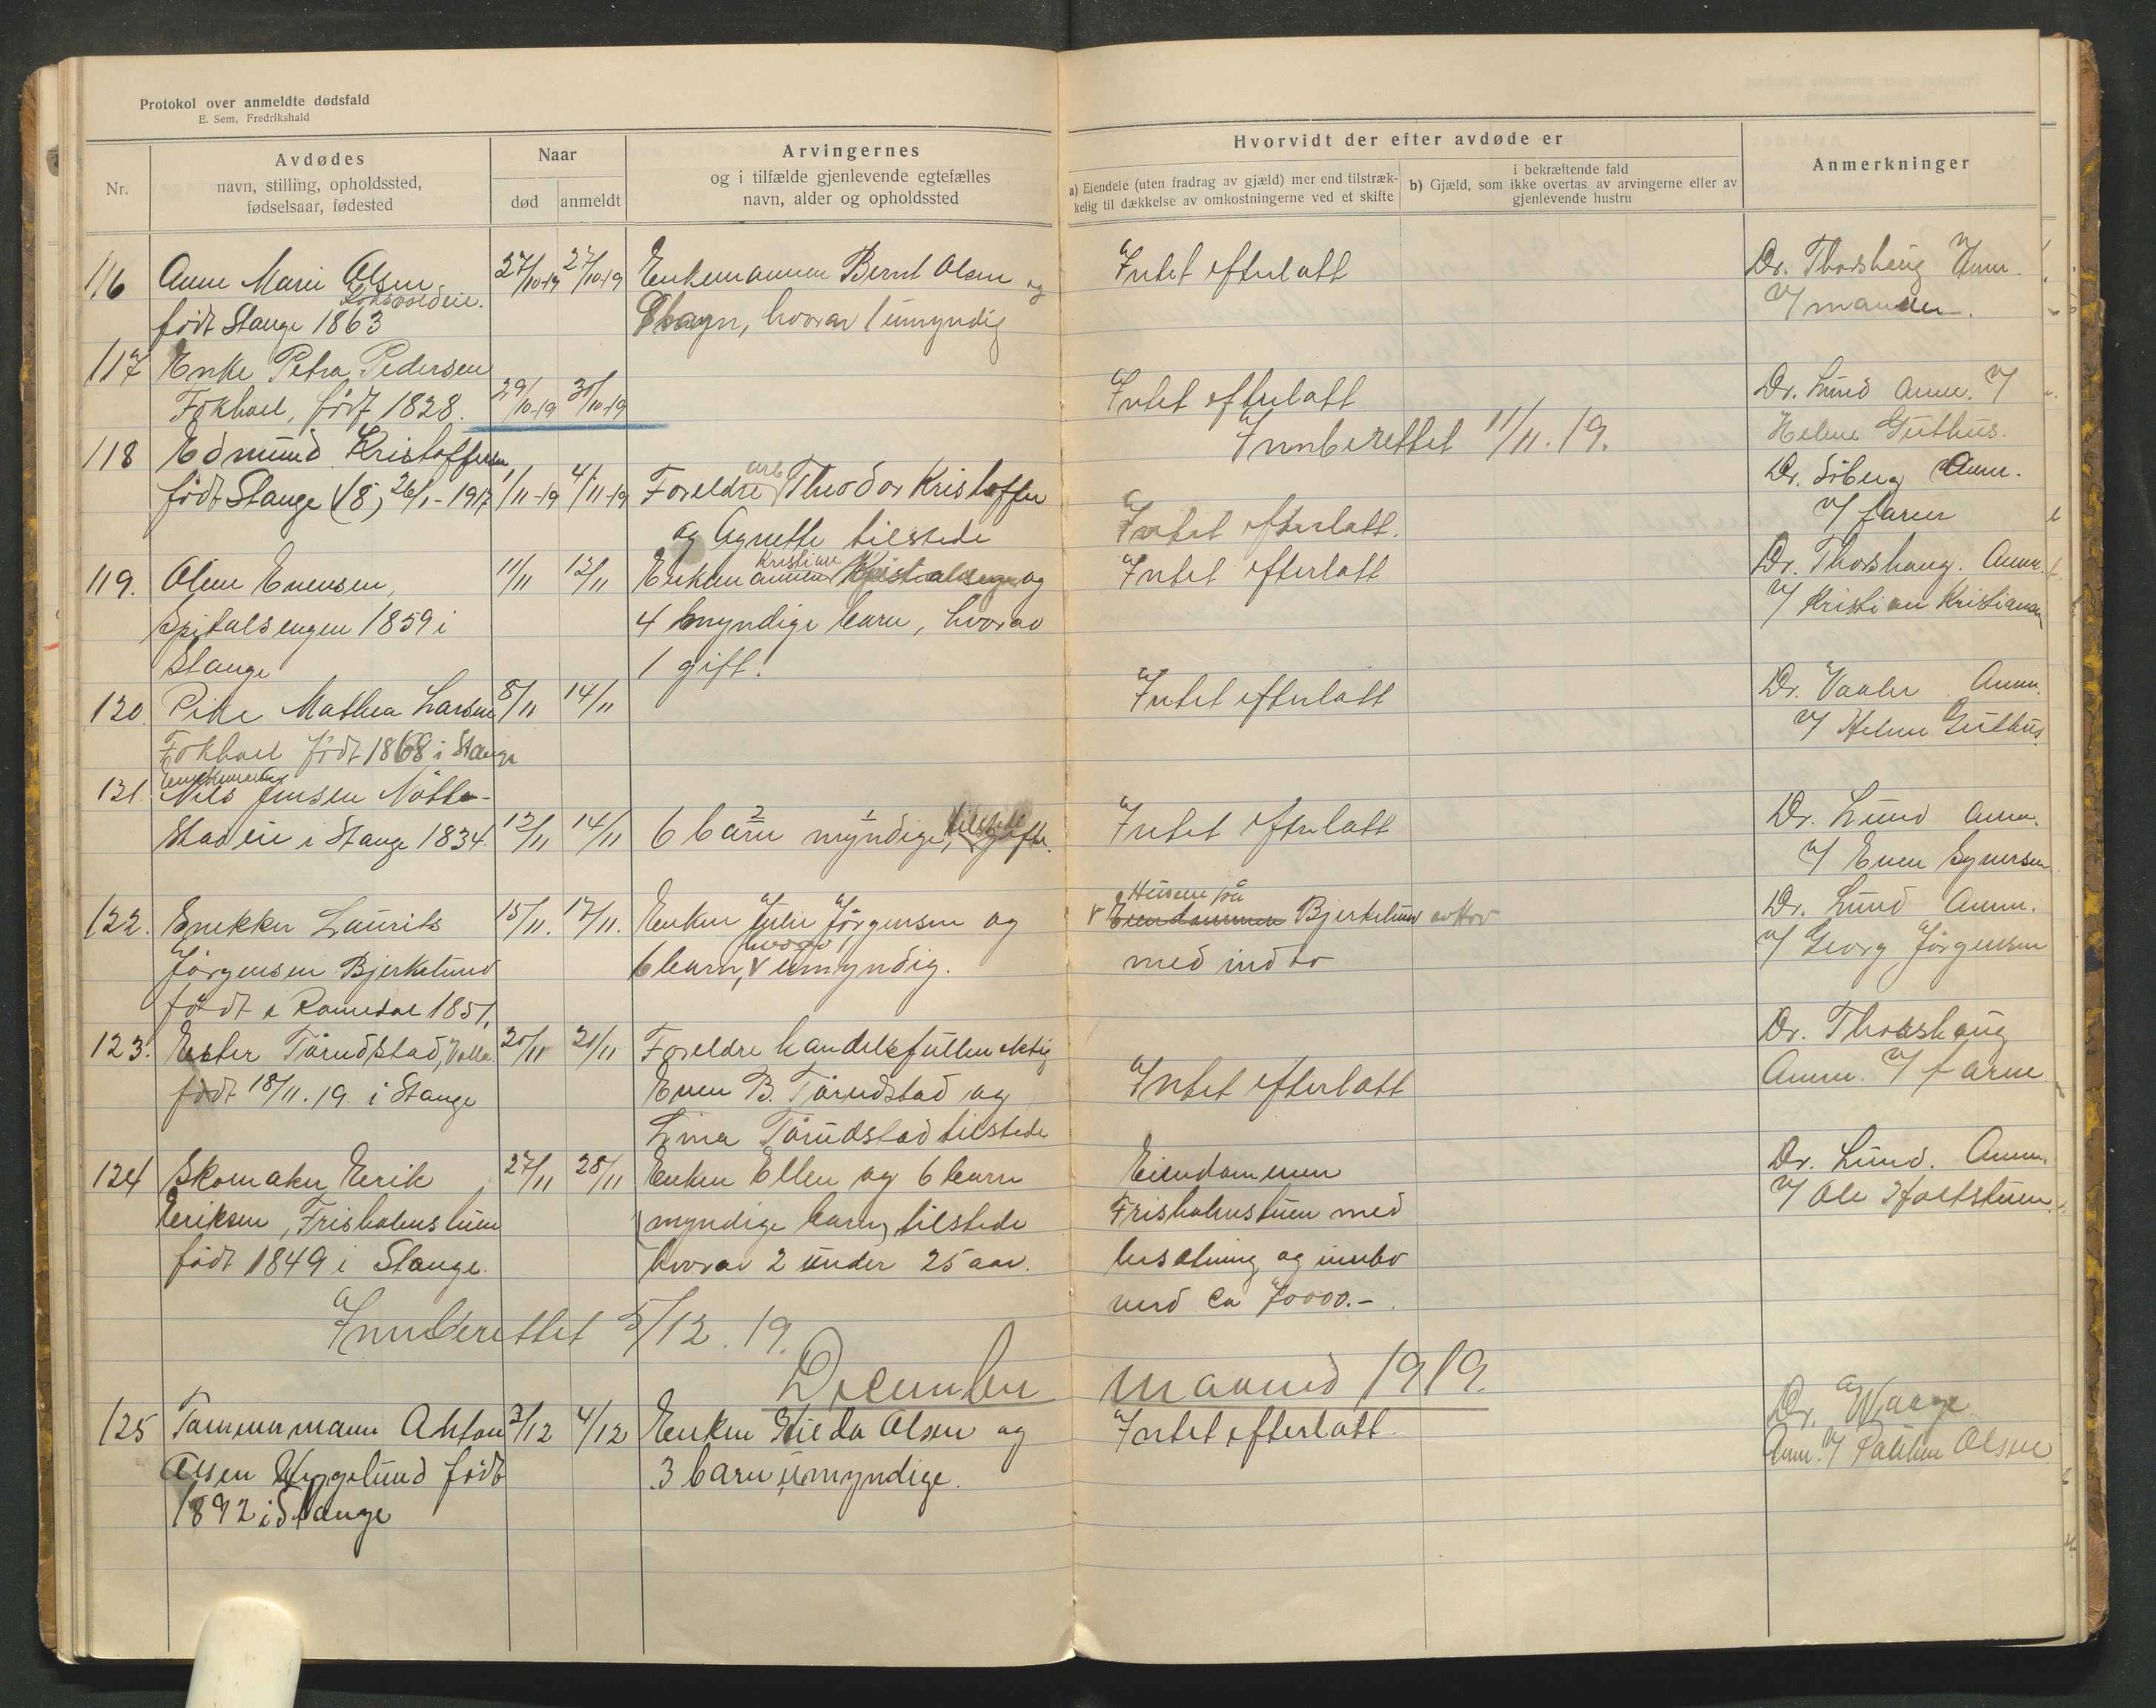 Protokol over anmeldte dødsfald
E. Sem, Fredrikshald
Nr.
Avdødes
navn, stilling, opholdssted,
fødselsaar, fødested
Naar
død
anmeldt
Arvingernes
og i tilfælde gjenlevende egtefælles
navn, alder og opholdssted
Hvorvidt der efter avdøde er
a) Eiendele (uten fradrag av gjæld) mer end tilstræk-
kelig til dækkelse av omkostningerne ved et skifte
i bekræftende fald
b) Gjæld, som ikke overtas av arvingerne eller av
gjenlevende hustru
Anmerkninger
116 Anne Marie Olsen 27/10-19 27/10-19 Enkemannen Bernt Olsen og Intet efterlatt Dr. Thorshaug Anm.
født Stange 1863 barn, hvorav 1 umyndig v/ manden.
117 Enke Petra Pedersen
Fokhol, født 1828. 29/10-19 30/10-19 Intet efterlatt Dr. Lund Anm. v/
Innberettet 11/11. 19. Helene Guthus.
118 Edmund Kristoffersen
født Stange 26/1-1917 1/11-19 4/11-19 Foreldre arb Theodor Kristoffer Dr. Söberg Anm.
og Agnette tilstede Intet efterlatt. v/ faren
119. Oline Evensen, 11/11 12/11 Enkemannen Kristian og Intet efterlatt Dr. Thorshaug. Anm.
Spitalsengen 1859 i 4 myndige barn, hvorav v/ Kristian Kristiansen
Stange 1 gift.
120. Pike Mathea Larsen 8/11 14/11 Intet efterlatt Dr. Vaaler Anm.
Fokhol født 1868 i Stange v/ Helene Guthus
121. Enkemand
Nils Jensen Nøtte-
stad eie i Stange 1834. 12/11 14/11 6 barn myndige, tilstede gifte. Intet efterlatt Dr. Lund Anm.
v/ Even Syversen
122. Snekker Laurits 15/11. 17/11. Enken Julie Jörgensen og Husene på Eiendommen Bjerkelund av Hov Dr. Lund Anm.
Jörgensen Bjerkelund 6 barn, hvorav 1 umyndig. med indbo v/ Georg Jörgensen
född i Romedal 1851.
123. Ester Törudstad, Volla 20/11 21/11 Foreldre handelsfullmektig Dr. Thorshaug
født 18/11. 19. i Stange Even B. Törudstad og Intet efterlatt Anm. v/ faren
Lina Törudstad tilstede
124 Skomaker Eerik 27/11 28/11 Enken Ellen og 6 barn Eiendommen Dr. Lund. Anm.
Eriksen, Frisholmstuen (myndige barn) tilstede Frisholmstuen med v/ Ole Holtstuen.
födt 1849 i Stange. hvorav 2 under 25 aar. besetning og innbo
verd ca 70000.-
Innberettet 5/12. 19.
December maaned 1919.
125 Tømmermann Anton 2/12 4/12 Enken Hilda Olsen og Intet efterlatt. Dr. Waage
Olsen Hygelund född 3 barn umyndige. Anm. v/ Pauline Olsen
1892 i Stange